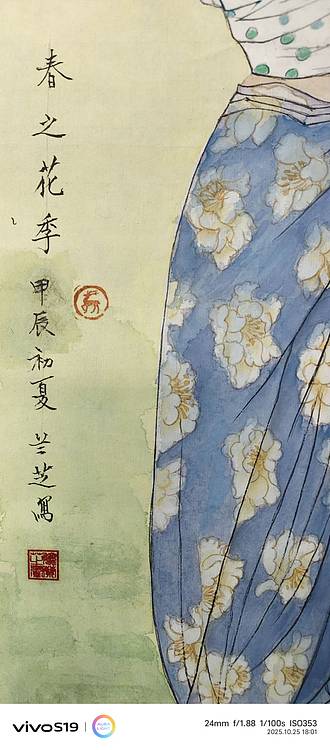 春之花季
甲辰初夏 芝寫
vivo S19
AURA LIGHT
24mm f/1.88 1/100s ISO353
2025.10.25 18:01